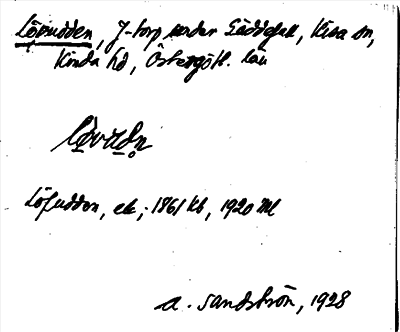 Lövudden, J-torp under Gäddefall, Kisa sn,
Kinda hd, Östergötl. län
lø̀vudn
Löfudden, ek; 1861 Kb, 1920 Ml
A. Sandström, 1928